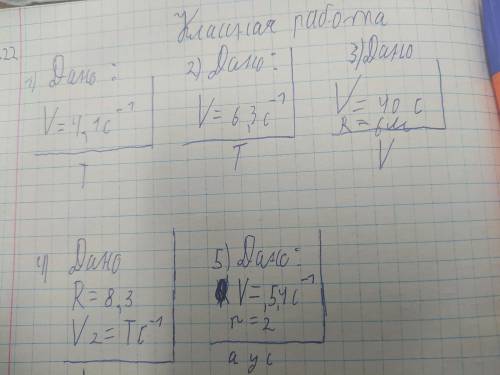 22
Классная работа
1) Дано:
V = 4,1 с⁻¹
T
2) Дано:
V = 6,3 с⁻¹
T
3) Дано
V = 40 с
R = 6м
V
4) Дано
R = 8,3
V2 = Tс⁻¹
5) Дано:
V = 5,4 с⁻¹
n = 2
a ус